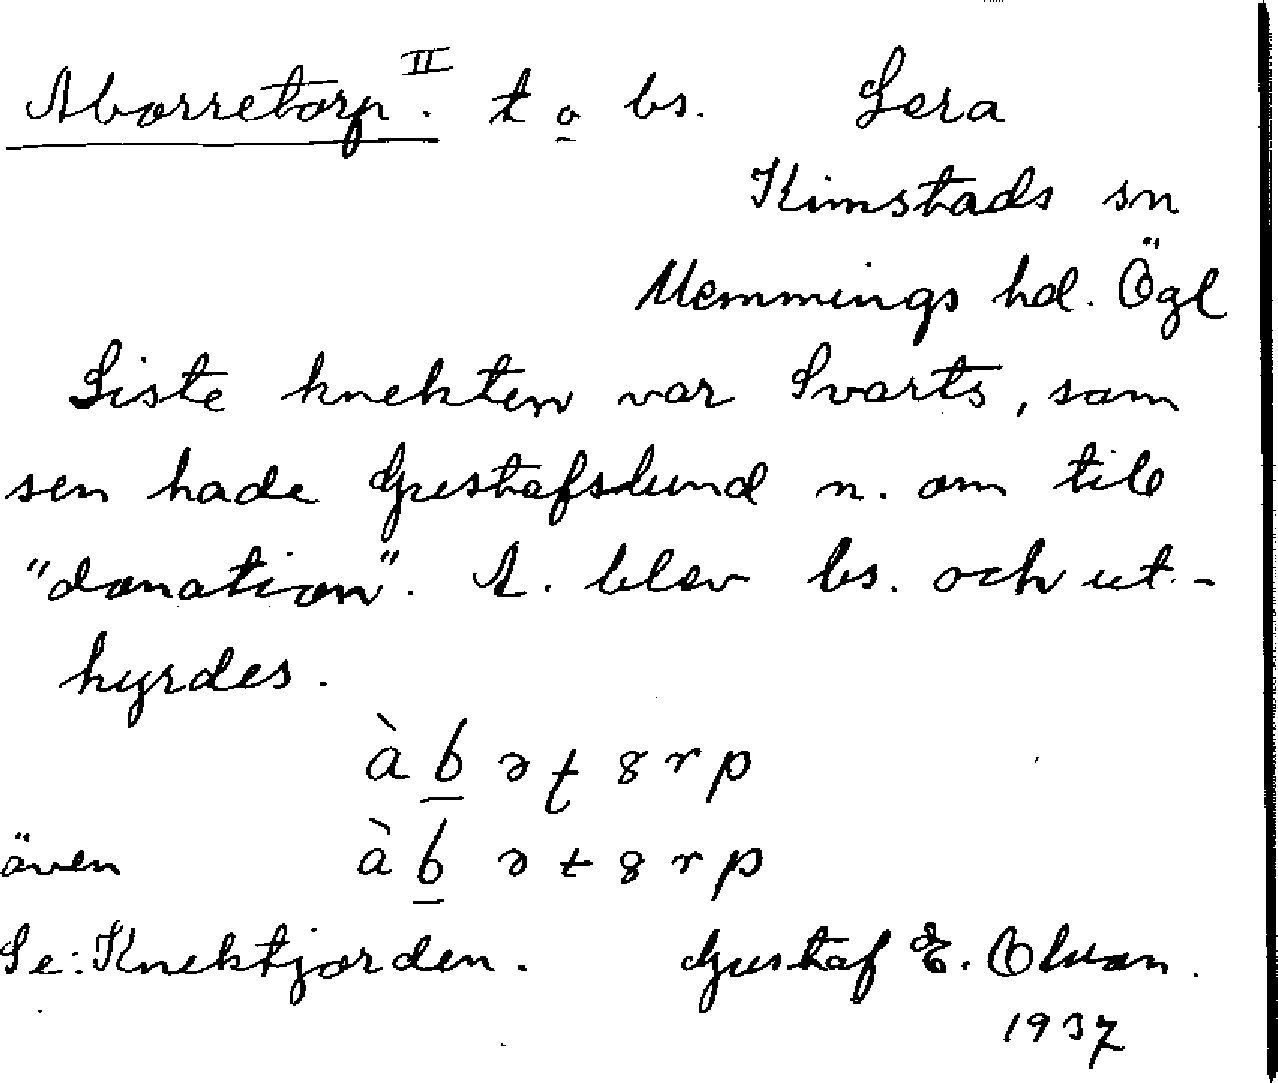 Aborretorp.ᴵᴵ t o bs. Lera
Kimstads sn
Memmings hd. Ögl
Siste knekten var Svarts, som
sen hade Gustafslund n. om till
"donation". A. blev bs. och ut-
hyrdes.
à b ə t 8 r p
även à b ə t 8 r p
Se: Knektjorden. Gustaf E. Olsson.
1937